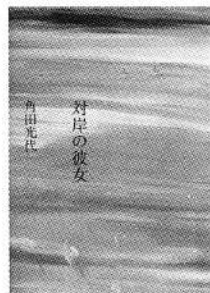 対岸の彼女
角田光代